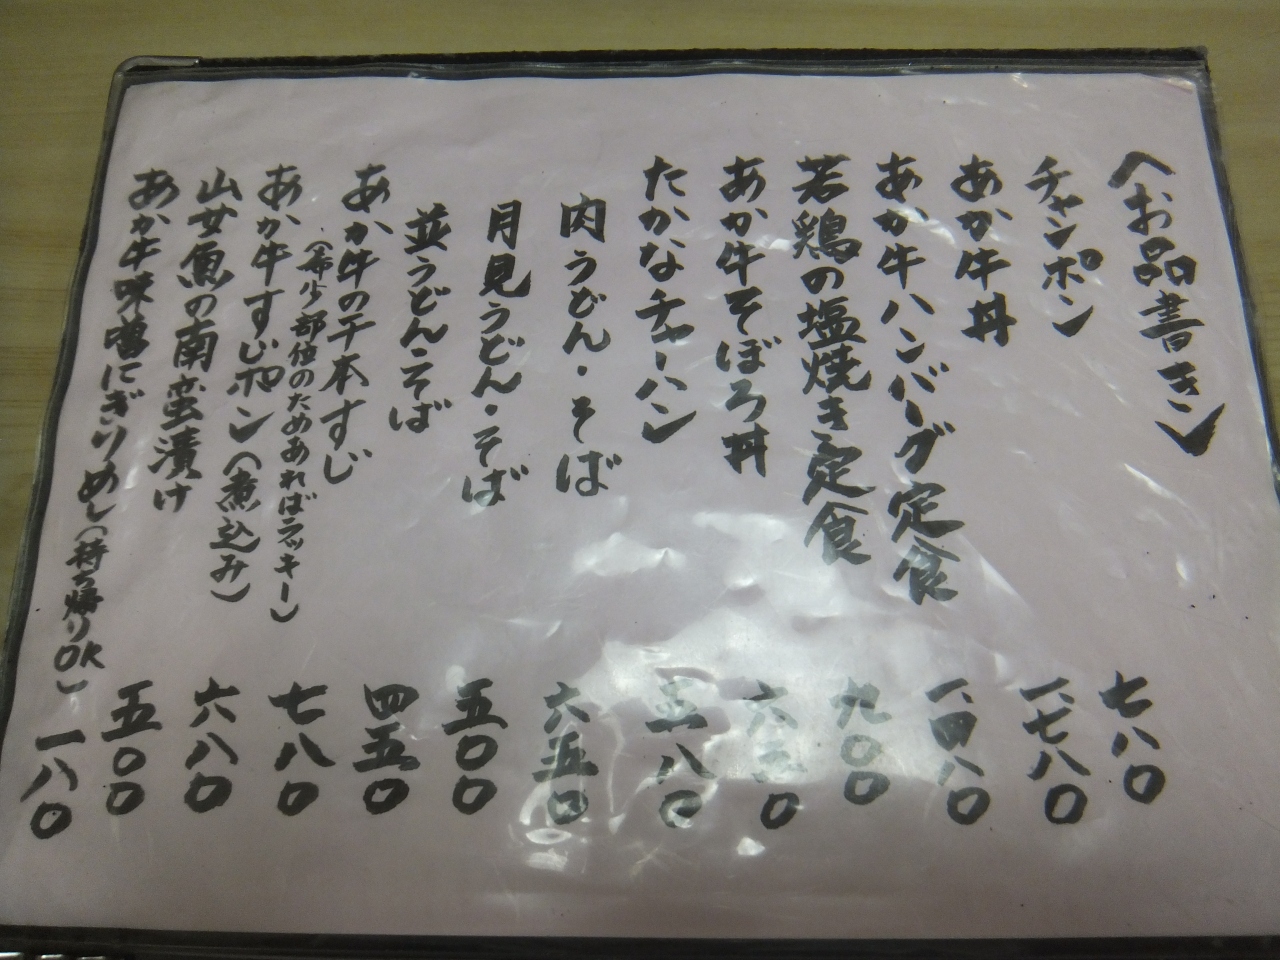 〈お品書き〉
チャンポン 七八〇
あか牛丼 一、七八〇
あか牛ハンバーグ定食 一、四八〇
若鶏の塩焼き定食 九〇〇
あか牛そぼろ丼 六三〇
たかなチャーハン 五八〇
肉うどん・そば 六五〇
月見うどん・そば 五〇〇
並うどん・そば 四五〇
あか牛の千本すじ 七八〇
(希少部位のためあればラッキー)
あか牛すじポン(煮込み) 六八〇
山女魚の南蛮漬け 五〇〇
あか牛味噌にぎりめし(持ち帰りOK) 一八〇